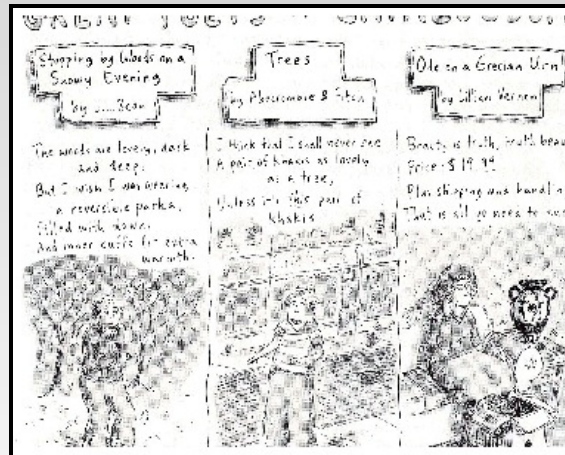 Stopping by Woods on a
Snowy Evening
by J.... Bean
The woods are lovely, dark
and deep.
But I wish I was wearing
a reversible parka,
filled with down,
and inner cuffs for extra
warmth.
Trees
by Abercrombie & Fitch
I think that I shall never see
A pair of khakis as lovely
as a tree,
Unless it's this pair of
khakis
Ode on a Grecian Urn
by Lillian Vernon
Beauty is truth, truth beau
Price: $19.99
Plus shipping and handlin
That is all ye need to